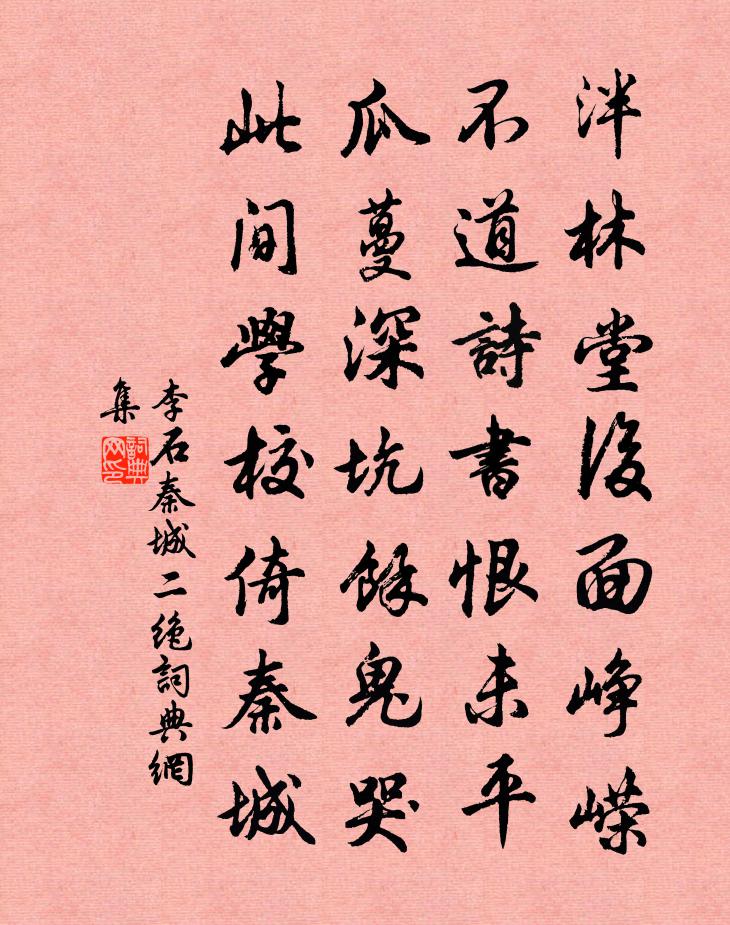 泮林堂後面崢嶸
不道詩書恨未平
瓜蔓深坑餘鬼哭
此間學校倚秦城
李石秦城二絕詞典網
集
詞典網印